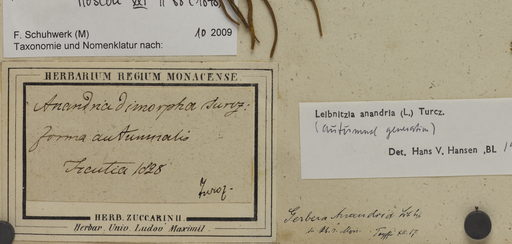 F. Schuhwerk (M) 10 2009
Taxonomie und Nomenklatur nach:
HERBARIUM REGIUM MONACENSE
Anandria dimorpha Turcz:
forma autumnalis
Ircutia 1828
Turcz.
HERB. ZUCCARINII
Herbar. Univ. Ludov Maximil
Leibnitzia anandria (L.) Turcz.
(autumnal generation)
Det. Hans V. Hansen ,BL
Gerbera Anandria